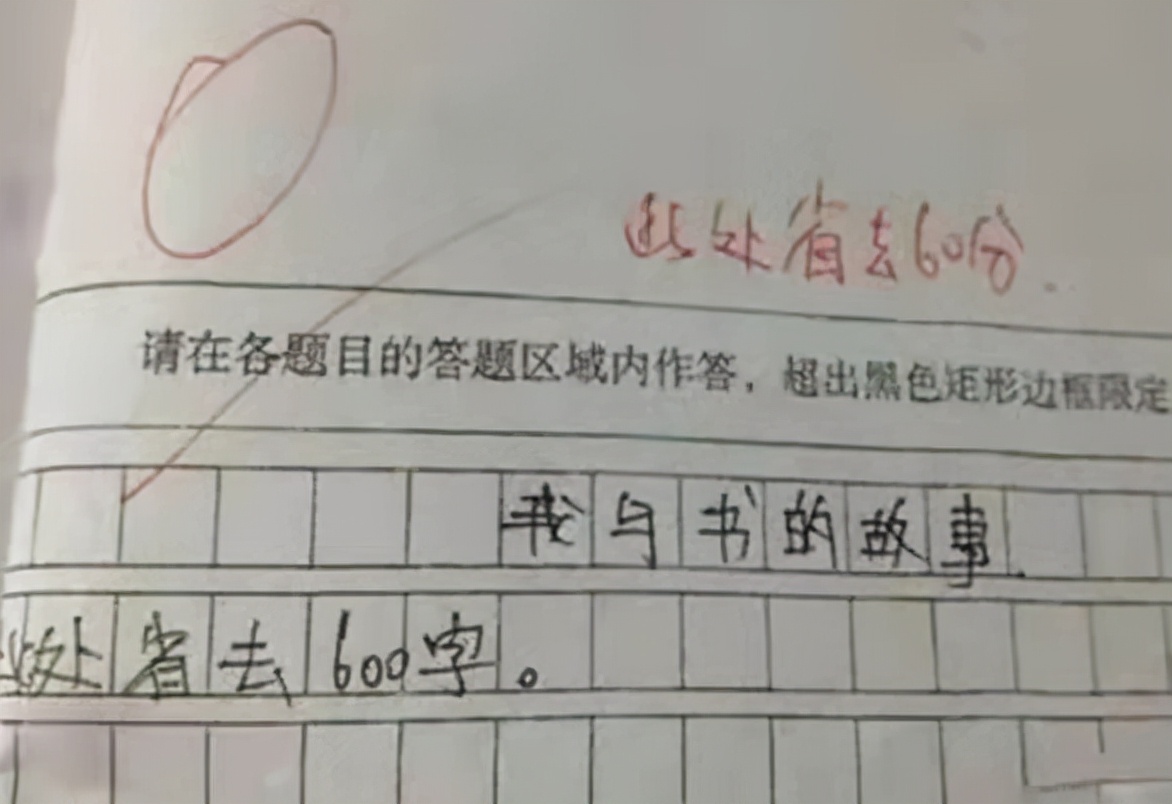 此处省去60分
请在各题目的答题区域内作答，超出黑色矩形边框限定
我与书的故事
此处省去600字。